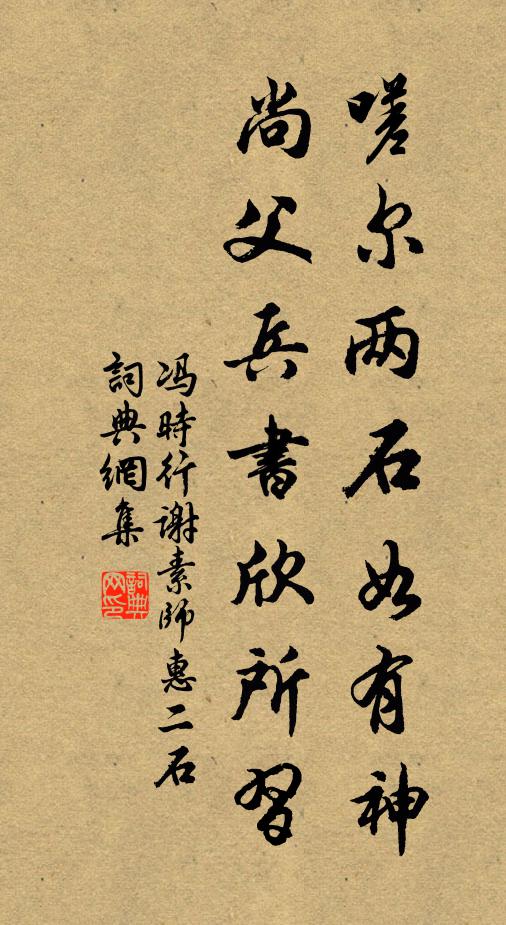 嗟尔两石如有神
尚父兵書欣所習
冯時行谢素師惠二石
詞典網集
詞典网印